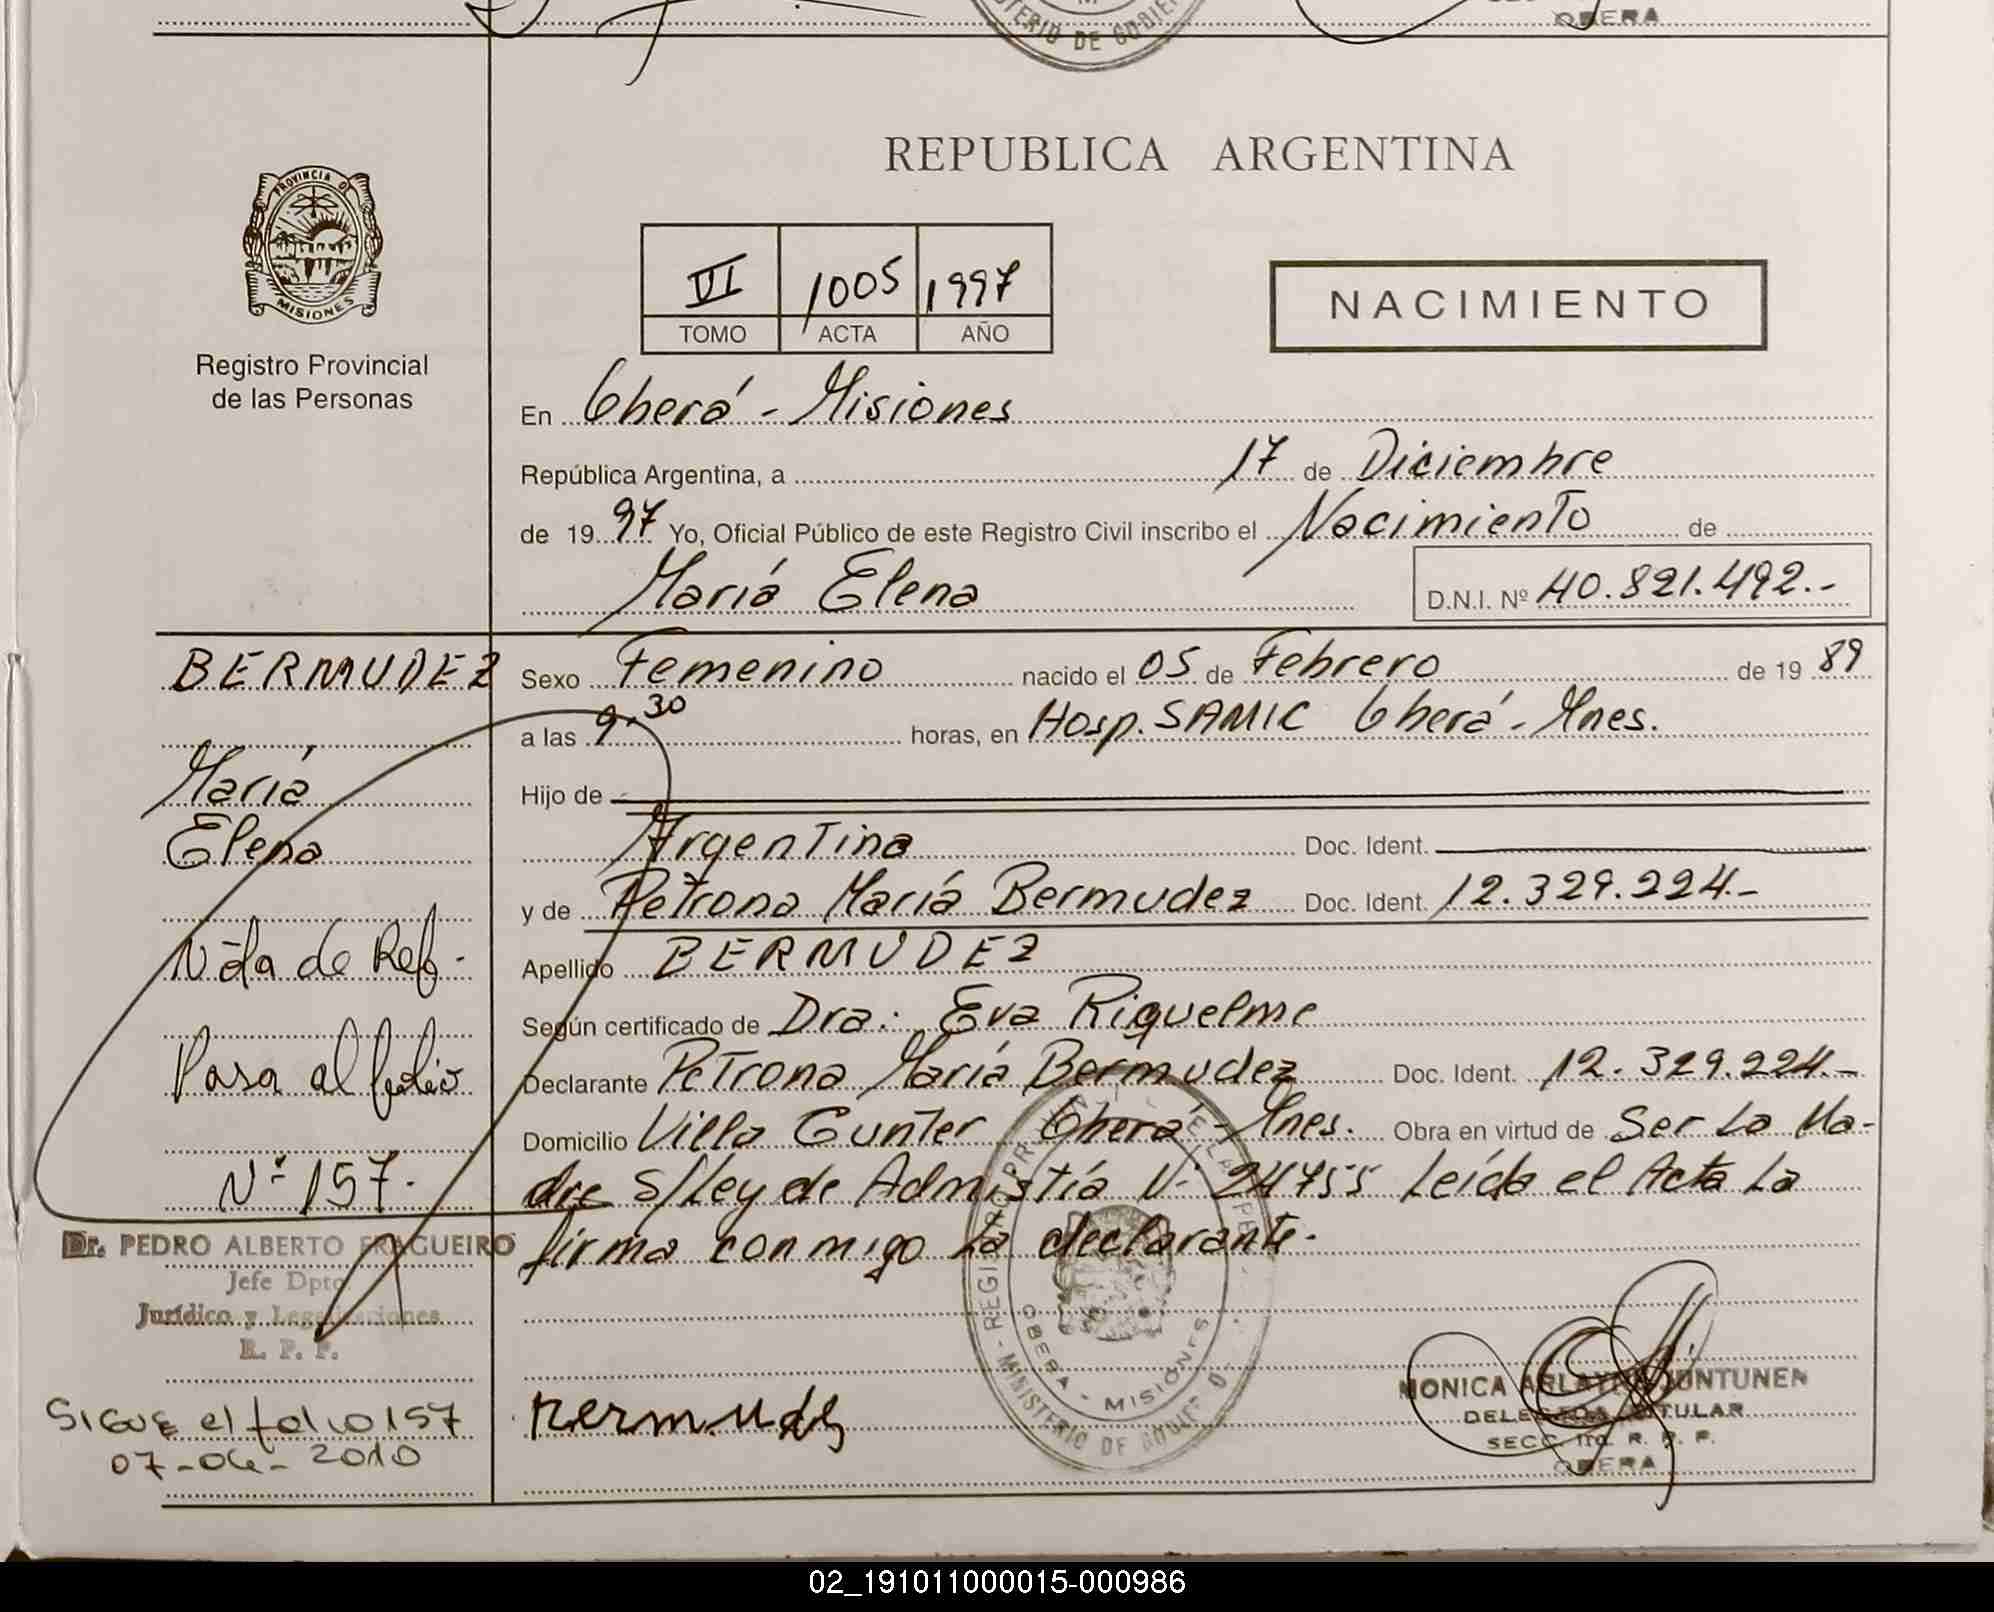 OBERA
MINISTERIO DE GOBIERNO
REPUBLICA ARGENTINA
PROVINCIA DE
MISIONES
Registro Provincial
de las Personas
VI 1005 1997
TOMO ACTA AÑO
NACIMIENTO
En Oberá - Misiones
República Argentina, a 17 de Diciembre
de 19 97 Yo, Oficial Público de este Registro Civil inscribo el Nacimiento de
Mariá Elena D.N.I. Nº 40.821.492.-
BERMUDEZ
Mariá
Elena
Nota de Ref.
Pasa al folio
Nº 157.
Dr. PEDRO ALBERTO FRAGUEIRO
Jefe Dpto
Jurídico y Legalizaciones
R. P. P.
SIGUE el folio 157
07-04-2010
Sexo Femenino nacido el 05 de Febrero de 19 89
a las 9,30 horas, en Hosp. SAMIC Oberá - Mnes.
Hijo de
Argentina Doc. Ident.
y de Petrona María Bermudez Doc. Ident. 12.329.224.-
Apellido BERMUDEZ
Según certificado de Dra: Eva Riquelme
Declarante Petrona María Bermudez Doc. Ident. 12.329.224.-
Domicilio Villa Gunter Oberá - Mnes. Obra en virtud de Ser La Ma-
dre S/Ley de Admistía Nº 24755 Leída el Acta La
firma conmigo La declarante.
OBERA - MISIONES
MINISTERIO DE
Bermudez
MONICA JUNTUNEN
DELEGADA TITULAR
SECC. R. P. P.
OBERA
02_191011000015-000986